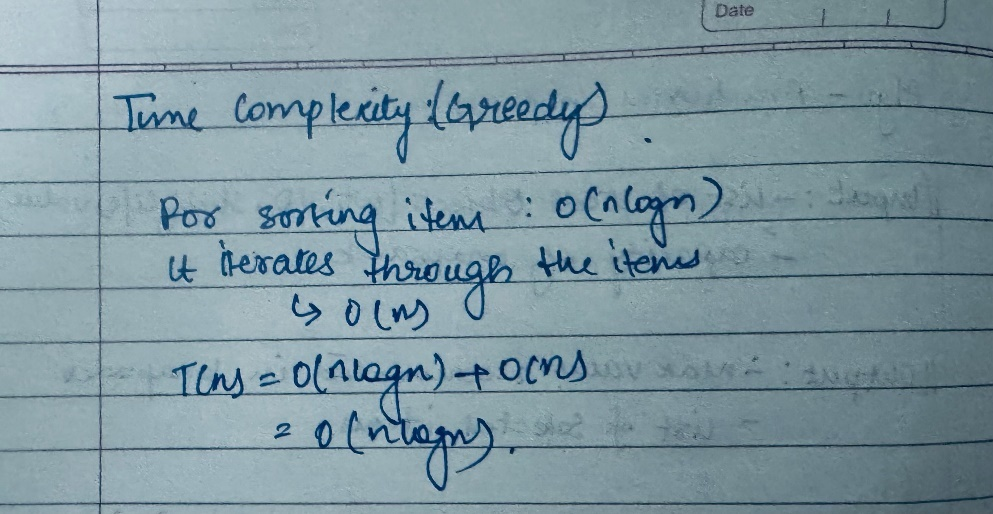 Date
Time Complexity : (Greedy)
For sorting item : O(nlogn)
It iterates through the items
↳ O(n)
T(n) = O(nlogn) + O(n)
= O(nlogn).